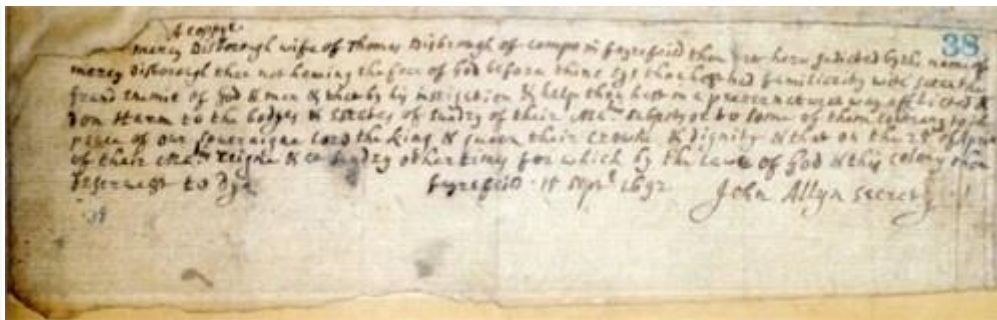 A coppye
38
mercy Disborough wife of Thomas Disbrough of compo in fayrefeild thou art here Indicted by the name of
mercy disborough that not haveing the fear of God before thine eys thou hast had familiarity with satan the
grand enemie of God & man & that by his instigation & help thou hast in a preternaturall way afflicted &
don Harm to the bodyes & estates of sundry of their Ma.ties subjects or to some of them contrary to the
peace of our soveraigne Lord the king & queen their crowne & dignity & that on the 25th of Aprill
of their Ma.ties reigne & at sundry other times for which by the lawe of God & this colony thou
deservest to dye
fayrefeild 15 Sept 1692
John Allyn secrety